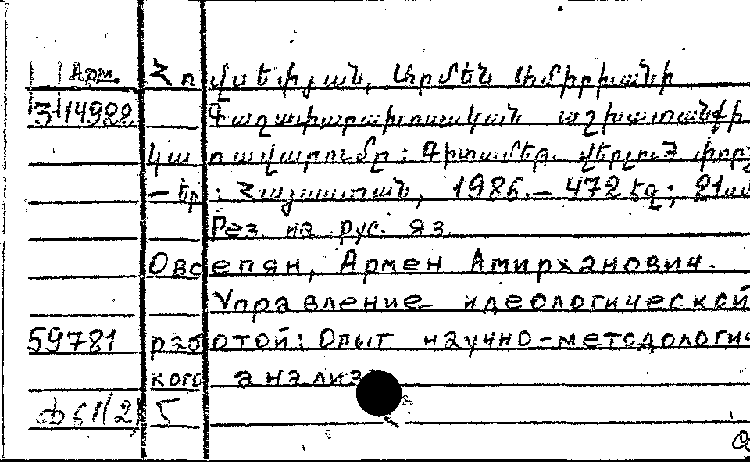 Арм. Հովսեփյան, Արմեն Ամիրխանի
3114922 Գաղափարախոսական աշխատանքի
կառավարումը: Գիտամեթ. վերլուծ. փորձ
— Եր.: Հայաստան, 1986. — 472 էջ; 21 սմ
Рез. на рус. яз.
Овсепян, Армен Амирханович.
Управление идеологической
59781 работой: Опыт научно-методологичес
кого анализа
5